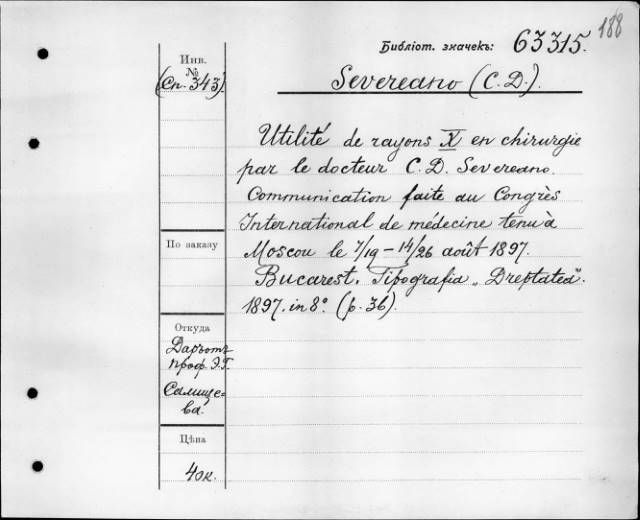 188
Библіот. значекъ: 63315.
Severeano (C. D.).
Инв.
№
(Сп. 343)
Utilité de rayons X en chirurgie
par le docteur C. D. Severeano.
Communication faite au Congrès
International de médecine tenu à
Moscou le 7/19 – 14/26 août 1897.
Bucarest. Tipografia „Dreptatea".
1897. in 8° (p. 36).
По заказу
Откуда
Даръ отъ
проф. Э.Г.
Салище-
ва.
Цѣна
40к.